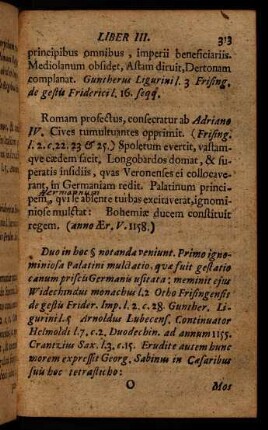 LIBER III. 313
principibus omnibus, imperii beneficiariis.
Mediolanum obsidet, Astam diruit, Dertonam
complanat. Guntherus Ligurini l. 3 Frising.
de gestis Friderici l. 16. seqq.
Romam profectus, consecratur ab Adriano
IV. Cives tumultuantes opprimit. (Frising.
l. 2. c. 22. 23 & 25.) Spoletum evertit, vastam-
que cædem facit, Longobardos domat, & su-
peratis insidiis, quas Veronenses ei collocave-
rant, in Germaniam redit. Palatinum princi-
pem, Hermannum qui se absente turbas excitaverat, ignomi-
niose mulctat: Bohemiæ ducem constituit
regem. (anno Ær. V. 1158.)
Duo in hoc § notanda veniunt. Primo igno-
miniosa Palatini mulctatio. quæ fuit gestatio
canum priscis Germanis usitata; meminit ejus
Widechindus monachus l. 2 Otho Frisingensis
de gestis Frider. Imp. l. 2. c. 28. Gunther. Li-
gurini l. 5 Arnoldus Lubecens. Continuator
Helmoldi l. 7. c. 2. Duodechin. ad annum 1155.
Crantzius Sax. l. 3. c. 15. Erudite autem hunc
morem expressit Georg. Sabinus in Cæsaribus
suis hoc tetrasticho:
O Mos